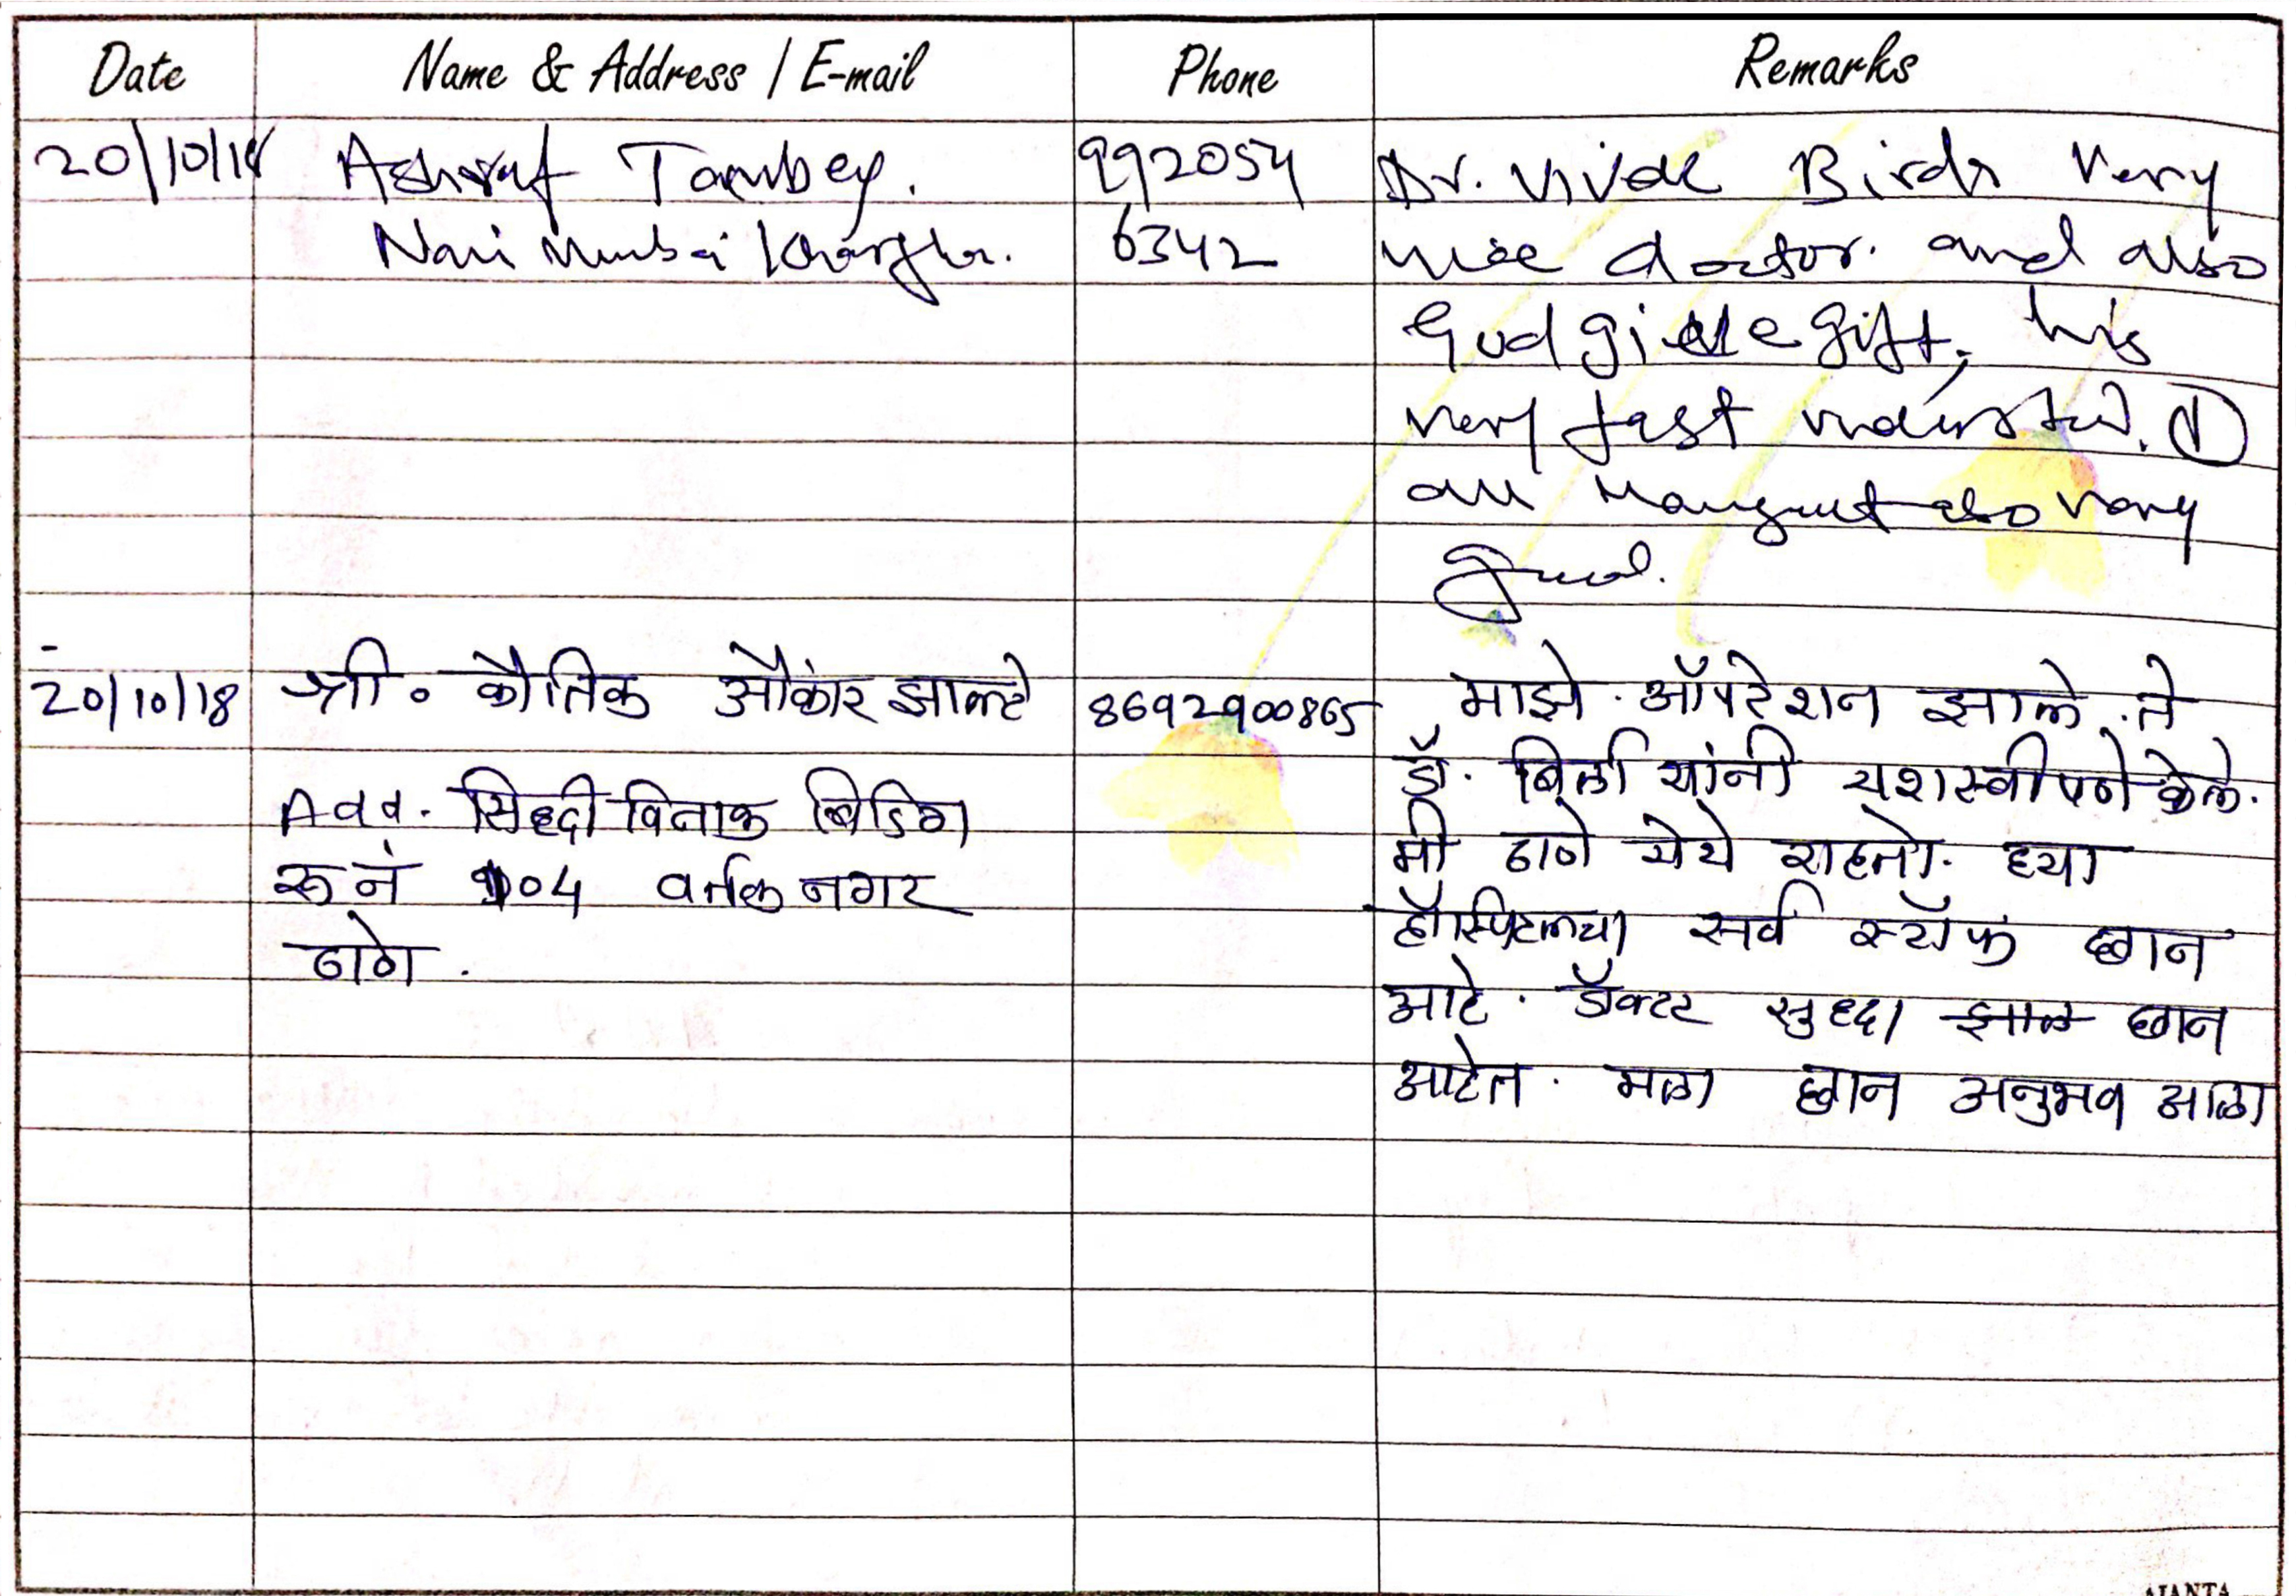 Date Name & Address / E-mail Phone Remarks
20/10/18 Ashraf Tambey. 992054 Dr. Vivek Birla very
Navi Mumbai Kharghar. 6342 nice doctor. and also
God gift, his
very fast
all also very
good.
20/10/18 श्री. कौतिक ओंकार झाल्टे 8692900865 माझे. ऑपरेशन झाले. ते
डॉ. बिर्ला यांनी यशस्वीपणे केले.
Add. सिद्दी विनाक बिडिंग मी ठाणे येथे राहतो. ह्या
रू नं 104 वर्तक नगर हॉस्पिटलचा सर्व स्टॉफ छान
ठाणे. आहे. डॉक्टर सुद्दा छान
आहेत. मला छान अनुभव आला
AJANTA